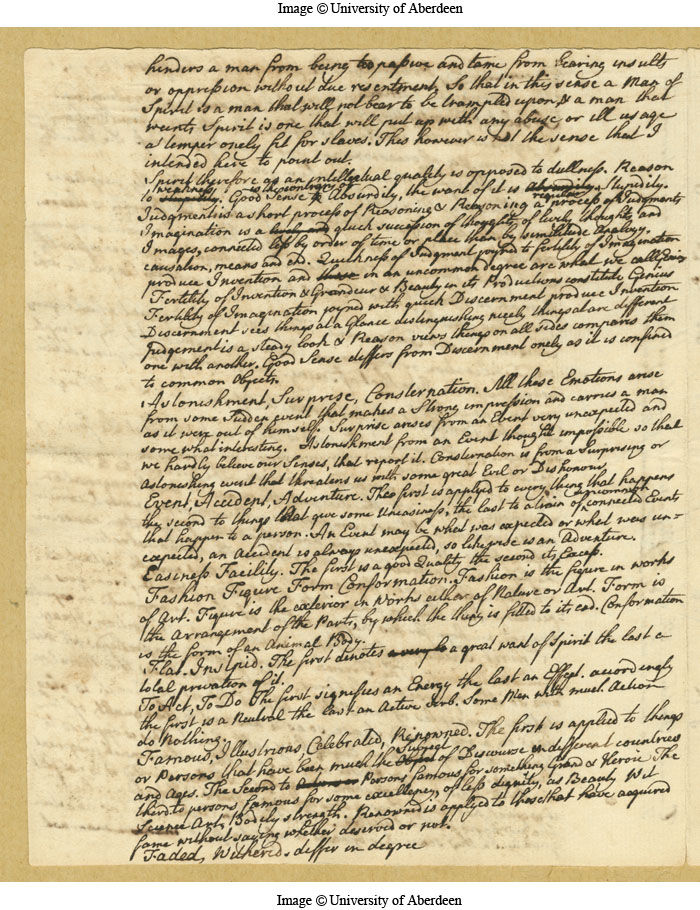 Image © University of Aberdeen
hinders a man from being too passive and tame from bearing insults
or oppression without due resentment, So that in this sense a Man of
Spirit is a man that will not bear to be trampled upon, & a man that
wants Spirit is one that will put up with any abuse or ill usage
a temper onely fit for slaves. This however is not the sense that I
intended here to point out.
Spirit therefore as an intellectual quality is opposed to dullness. Reason
to weakness, Good Sense is the contrary of Absurdity, the want of it is Stupidity.
Judgment is a short process of Reasoning & Reasoning a process of Judgments
Imagination is a quick succession of thoughts, of lively thoughts and
Images, connected less by order of time or place than by similitude Analogy,
causation, means and end. Quickness of Judgment joyned to fertility of Imagination
produce Invention and in an uncommon degree are what we call Genius
Fertility of Invention & Grandeur & Beauty in its Productions constitute Genius
Fertility of Imagination joyned with quick Discernment produce Invention
Discernment sees things at a Glance distinguishing nicely things that are different
Judgement is a steady look & Reason views things on all sides compares them
one with another. Good Sense differs from Discernment onely as it is confined
to common Objects.
Astonishment, Surprise, Consternation. All these Emotions arise
from some Sudden event that makes a Strong impression and carries a man
as it were out of himself. Surprise arises from an Event very unexpected and
some what interesting. Astonishment from an Event thought impossible so that
we hardly believe our Senses, that report it. Consternation is from a Surprising or
astonishing event that threatens us with some great Evil or Dishonour.
Event, Accident, Adventure. The first is applied to every thing that happens
the second to things that give some Uneasiness, the last to a train of uncommon connected Events
that happen to a person. An Event may be what was expected or what was un=
expected, an Accident is always unexpected, so likewise is an Adventure.
Easiness Facility. The first is a good Quality the second its Excess.
Fashion Figure Form Conformation. Fashion is the figure in works
of Art. Figure is the exterior in Works either of Nature or Art. Form is
the Arrangement of the Parts, by which the thing is fitted to its end. Conformation
is the form of an Animal Body.
Flat. Insipid. The first denotes a great want of Spirit the last a
total privation of it.
To Act, To Do The first signifies an Energy the last an Effect. accordingly
the first is a Neutral the last an Active Verb. Some Men with much Action
do Nothing.
Famous, Illustrious, Celebrated, Renowned. The first is applied to things
or Persons that have been much the Subject of Discourse in different countries
and Ages. The Second to Persons famous for something Grand & Heroic The
third to persons famous for some excellency of less dignity, as Beauty Wit
Science Art, Bodily strength. Renowned is applied to those that have acquired
fame without saying whether deserved or not.
Faded, Withered. differ in degree
Image © University of Aberdeen